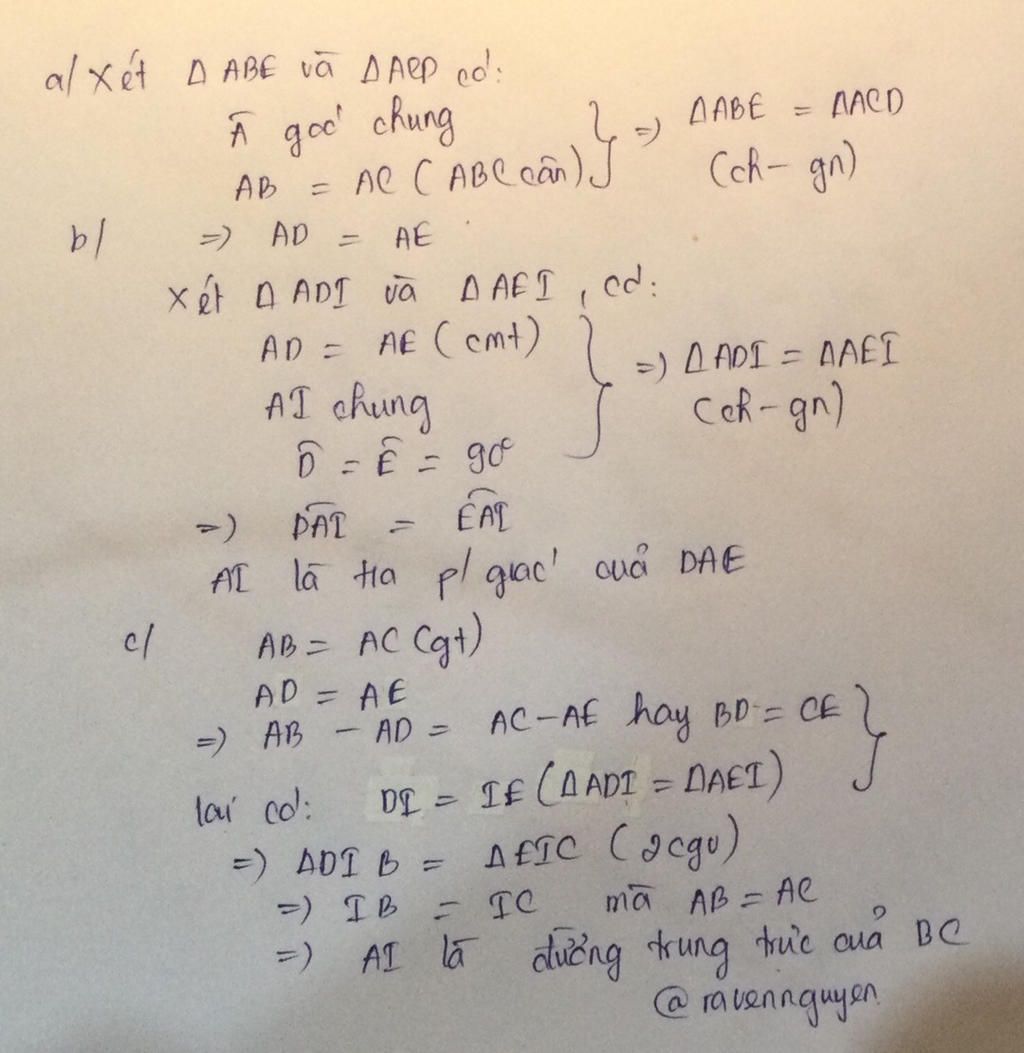 a/ Xét Δ ABE và ΔACD có:
Â góc chung
AB = AC (ABC cân) } => ΔABE = ΔACD
(ch - gn)
b/ => AD = AE
Xét Δ ADI và Δ AEI, có:
AD = AE (cmt)
AI chung } => Δ ADI = ΔAEI
(ch - gn)
D̂ = Ê = 90°
=> DAI = EAI
AI là tia p/ giác cuả DAE
c/ AB = AC (gt)
AD = AE
=> AB - AD = AC - AE hay BD = CE }
lại có: DI = IE (ΔADI = ΔAEI)
=> ΔDIB = ΔEIC (2cgv)
=> IB = IC mà AB = AC
=> AI là đường trung trực cuả BC
@ravennguyen